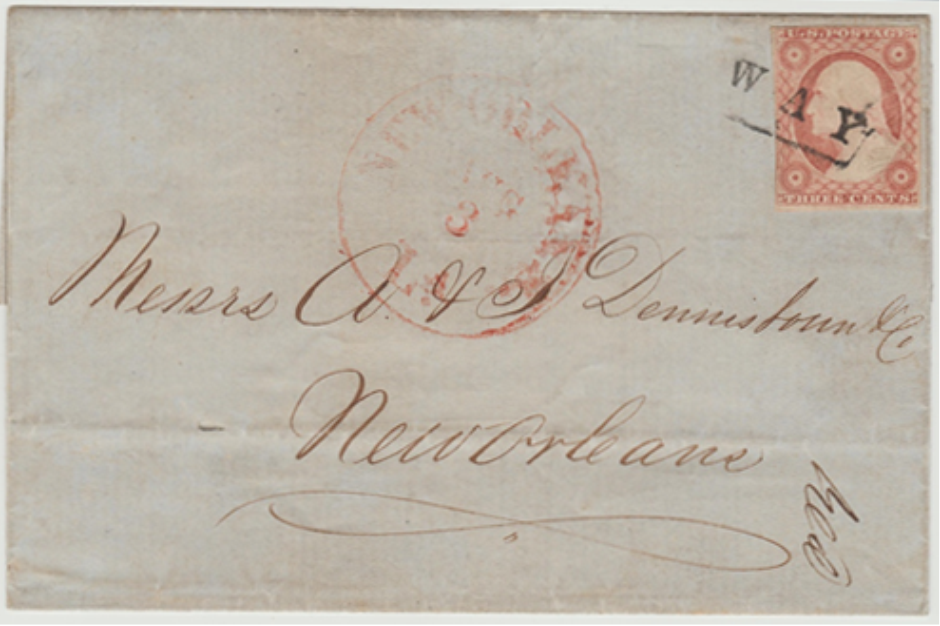 U.S. POSTAGE
WAY
THREE CENTS
NEW ORLEANS
3
Messrs A. & J Dennistoun & Co
New Orleans